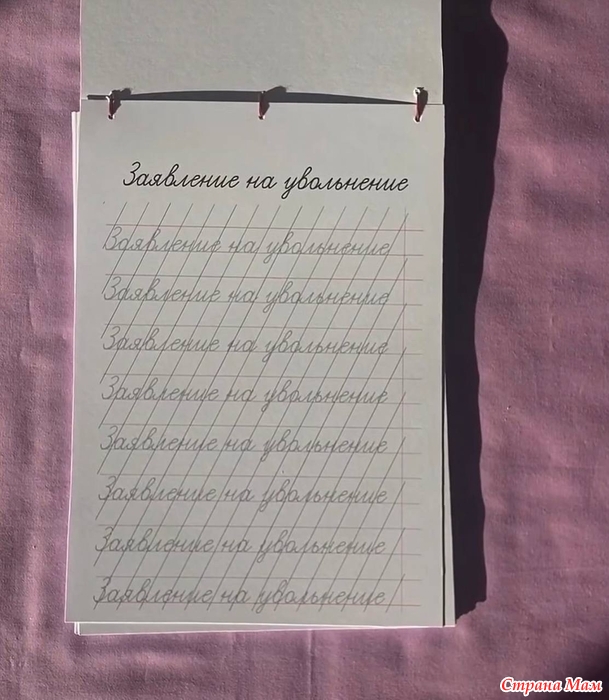 Заявление на увольнение
Заявление на увольнение
Заявление на увольнение
Заявление на увольнение
Заявление на увольнение
Заявление на увольнение
Заявление на увольнение
Заявление на увольнение
Заявление на увольнение
Страна Мам